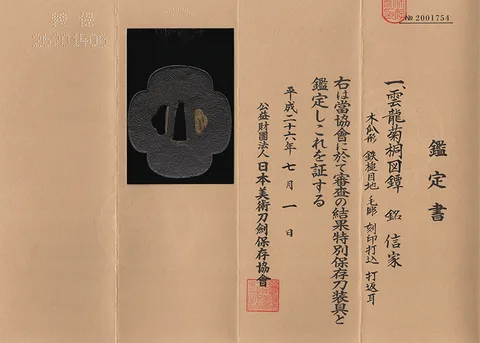 № 2001754
鑑定書
一、雲龍菊桐図鐔 銘 信家
木瓜形 鉄槌目地 毛彫 刻印打込 打返耳
右は當協會に於て審査の結果特別保存刀装具と
鑑定しこれを証する
平成二十六年七月一日
公益財團法人日本美術刀劍保存協會